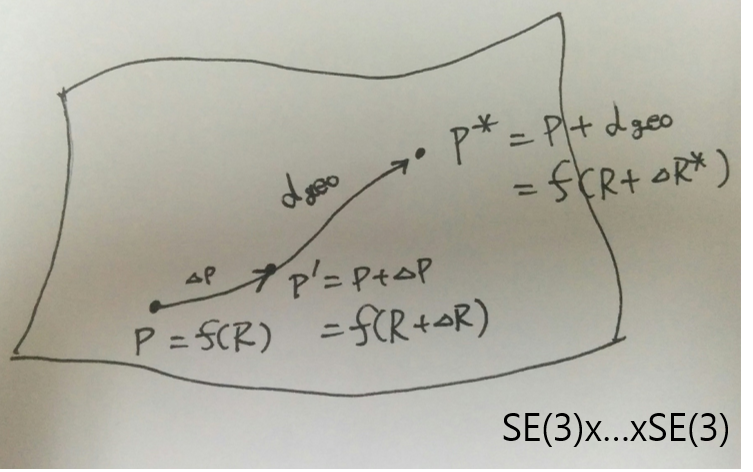 P* = P + dgeo
= f(R + ΔR*)
dgeo
ΔP
P' = P + ΔP
= f(R + ΔR)
P = f(R)
SE(3)x...xSE(3)